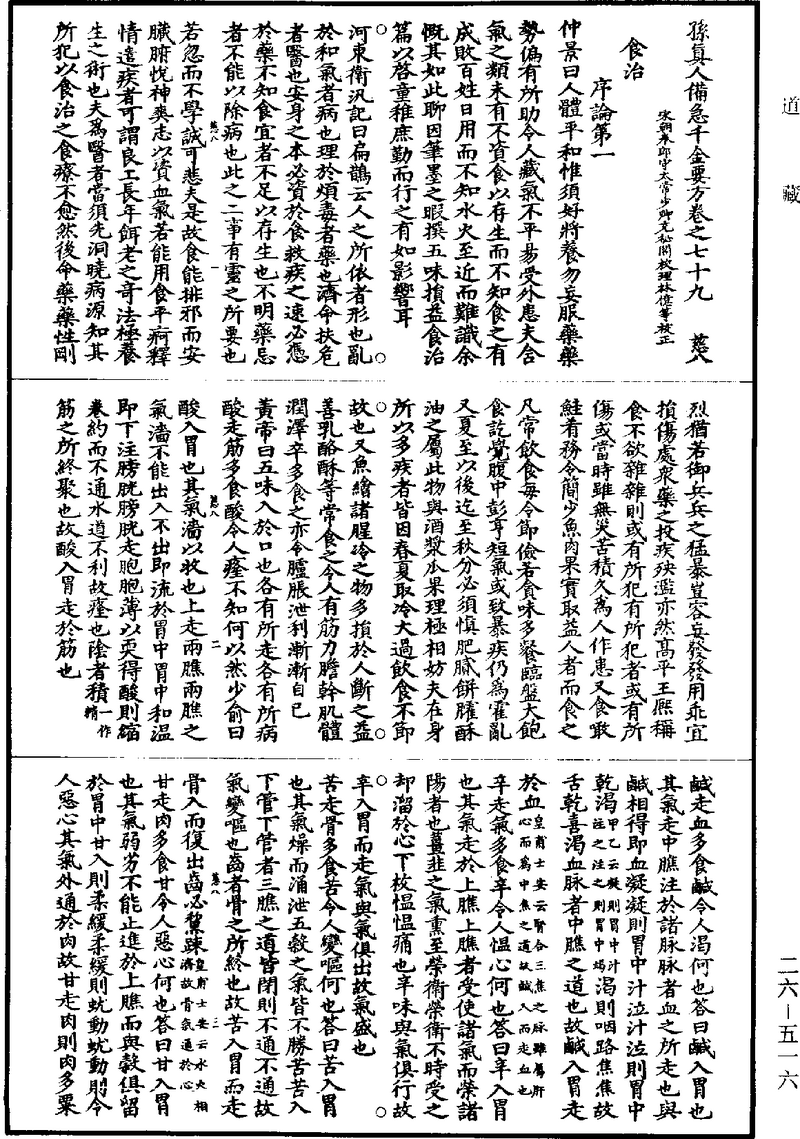 道藏
二六－五一六
孫真人備急千金要方卷之七十九 慈八
宋朝奉郎守太常少卿充秘閣校理林億等校正
食治
序論第一
仲景曰人體平和惟須好將養勿妄服藥藥
勢偏有所助令人藏氣不平易受外患夫含
氣之類未有不資食以存生而不知食之有
成敗百姓日用而不知水火至近而難識余
慨其如此聊因筆墨之暇撰五味損益食治
篇以啓童稚庶勤而行之有如影響耳
河東衛汎記曰扁鵲云人之所依者形也亂
於和氣者病也理於煩毒者藥也濟命扶危
者醫也安身之本必資於食救疾之速必憑
於藥不知食宜者不足以存生也不明藥忌
者不能以除病也此之二事有靈之所要也
慈八 一
若忽而不學誠可悲夫是故食能排邪而安
臟腑悅神爽志以資血氣若能用食平痾釋
情遣疾者可謂良工長年餌老之奇法極養
生之術也夫為醫者當須先洞曉病源知其
所犯以食治之食療不愈然後命藥藥性剛
烈猶若御兵兵之猛暴豈容妄發發用乖宜
損傷處衆藥之投疾殃濫亦然高平王熙稱
食不欲雜雜則或有所犯有所犯者或有所
傷或當時雖無災苦積久為人作患又食噉
鮭肴務令簡少魚肉果實取益人者而食之
凡常飲食每令節儉若貪味多餐臨盤大飽
食訖覺腹中彭亨短氣或致暴疾仍為霍亂
又夏至以後迄至秋分必須慎肥膩餅臛酥
油之屬此物與酒漿瓜果理極相妨夫在身
所以多疾者皆因春夏取冷大過飲食不節
故也又魚鱠諸腥冷之物多損於人斷之益
善乳酪酥等常食之令人有筋力膽幹肌體
潤澤卒多食之亦令臚脹泄利漸漸自已
黃帝曰五味入於口也各有所走各有所病
酸走筋多食酸令人癃不知何以然少俞曰
慈八 二
酸入胃也其氣濇以收也上走兩瞧兩瞧之
氣濇不能出入不出即流於胃中胃中和溫
即下注膀胱膀胱走胞胞薄以耎得酸則縮
卷約而不通水道不利故癃也陰者積一作精
筋之所終聚也故酸入胃走於筋也
鹹走血多食鹹令人渴何也答曰鹹入胃也
其氣走中瞧注於諸脉脉者血之所走也與
鹹相得即血凝凝則胃中汁泣汁泣則胃中
乾渴甲乙云凝則胃中汁注之注之則胃中竭渴則咽路焦焦故
舌乾喜渴血脉者中瞧之道也故鹹入胃走
於血皇甫士安云腎合三焦之脉雖屬肝心而為中焦之道故鹹入而走血也
辛走氣多食辛令人愠心何也答曰辛入胃
也其氣走於上瞧上瞧者受使諸氣而榮諸
陽者也薑韭之氣熏至榮衛榮衛不時受之
却溜於心下故愠愠痛也辛味與氣俱行故
辛入胃而走氣與氣俱出故氣盛也
苦走骨多食苦令人變嘔何也答曰苦入胃
也其氣燥而涌泄五穀之氣皆不勝苦苦入
下管下管者三瞧之道皆閉則不通不通故
氣變嘔也齒者骨之所終也故苦入胃而走
慈八 三
骨入而復出齒必黧踈皇甫士安云水火相濟故骨氣通於心
甘走肉多食甘令人惡心何也答曰甘入胃
也其氣弱劣不能上進於上瞧而與穀俱留
於胃中甘入則柔緩柔緩則蚘動蚘動則令
人惡心其氣外通於肉故甘走肉則肉多粟